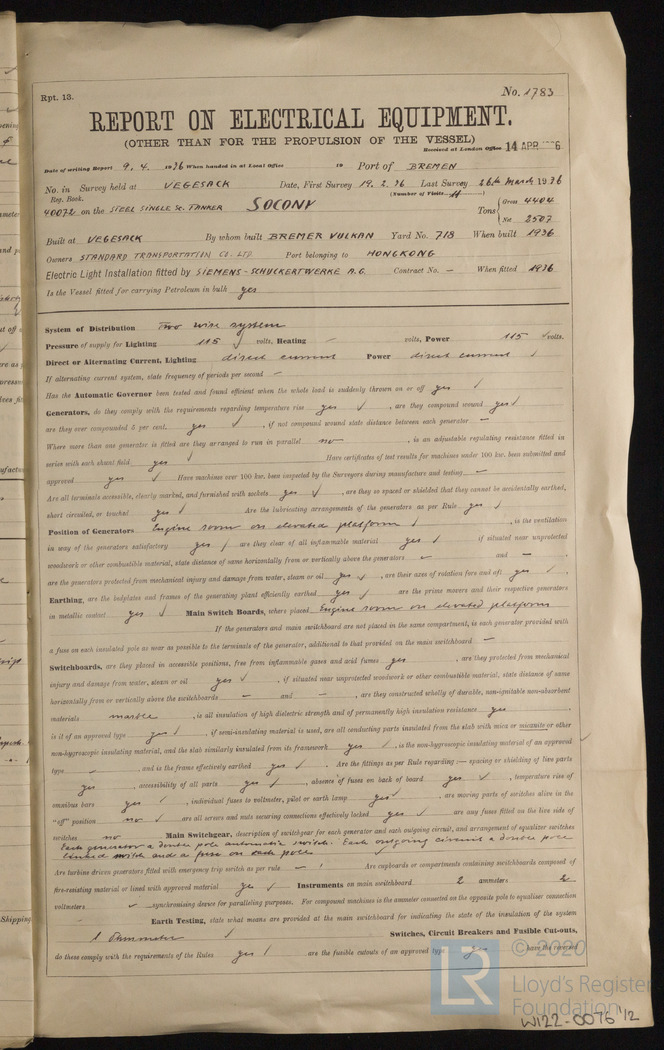 Rpt. 13.
No. 1783
REPORT ON ELECTRICAL EQUIPMENT.
(OTHER THAN FOR THE PROPULSION OF THE VESSEL)
Received at London Office 14 APR
Date of writing Report 9. 4. 1936 When handed in at Local Office 19 Port of BREMEN
No. in Survey held at VEGESACK Date, First Survey 19. 2. 36 Last Survey 26th March 1936
Reg. Book. (Number of Visits
40072 on the STEEL SINGLE Sc. TANKER SOCONY Tons { Gross 4404
Net 2507
Built at VEGESACK By whom built BREMER VULKAN Yard No. 718 When built 1936
Owners STANDARD TRANSPORTATION CO. LTD Port belonging to HONGKONG
Electric Light Installation fitted by SIEMENS-SCHUCKERTWERKE A.G. Contract No. – When fitted 1936
Is the Vessel fitted for carrying Petroleum in bulk yes
System of Distribution Two wire system
Pressure of supply for Lighting 115 ✓ volts, Heating – volts, Power 115 ✓ volts.
Direct or Alternating Current, Lighting direct current Power direct current ✓
If alternating current system, state frequency of periods per second –
Has the Automatic Governor been tested and found efficient when the whole load is suddenly thrown on or off yes ✓
Generators, do they comply with the requirements regarding temperature rise yes ✓, are they compound wound yes ✓
are they over compounded 5 per cent. yes ✓, if not compound wound state distance between each generator –
Where more than one generator is fitted are they arranged to run in parallel no, is an adjustable regulating resistance fitted in
series with each shunt field yes ✓ Have certificates of test results for machines under 100 kw. been submitted and
approved yes ✓ Have machines over 100 kw. been inspected by the Surveyors during manufacture and testing –
Are all terminals accessible, clearly marked, and furnished with sockets yes ✓, are they so spaced or shielded that they cannot be accidentally earthed,
short circuited, or touched yes ✓ Are the lubricating arrangements of the generators as per Rule yes ✓
Position of Generators Engine room on elevated platform ✓, is the ventilation
in way of the generators satisfactory yes ✓ are they clear of all inflammable material yes ✓ if situated near unprotected
woodwork or other combustible material, state distance of same horizontally from or vertically above the generators – and –,
are the generators protected from mechanical injury and damage from water, steam or oil yes ✓, are their axes of rotation fore and aft yes ✓.
Earthing, are the bedplates and frames of the generating plant efficiently earthed yes ✓ are the prime movers and their respective generators
in metallic contact yes ✓ Main Switch Boards, where placed Engine room on elevated platform
If the generators and main switchboard are not placed in the same compartment, is each generator provided with
a fuse on each insulated pole as near as possible to the terminals of the generator, additional to that provided on the main switchboard –
Switchboards, are they placed in accessible positions, free from inflammable gases and acid fumes yes, are they protected from mechanical
injury and damage from water, steam or oil yes ✓, if situated near unprotected woodwork or other combustible material, state distance of same
horizontally from or vertically above the switchboards – and –, are they constructed wholly of durable, non-ignitable non-absorbent
materials marble, is all insulation of high dielectric strength and of permanently high insulation resistance yes,
is it of an approved type yes ✓, if semi-insulating material is used, are all conducting parts insulated from the slab with mica or micanite or other
non-hygroscopic insulating material, and the slab similarly insulated from its framework yes ✓, is the non-hygroscopic insulating material of an approved
type – and is the frame effectively earthed yes ✓. Are the fittings as per Rule regarding :— spacing or shielding of live parts
yes, accessibility of all parts yes ✓, absence of fuses on back of board yes ✓, temperature rise of
omnibus bars yes ✓, individual fuses to voltmeter, pilot or earth lamp yes ✓, are moving parts of switches alive in the
"off" position no ✓ are all screws and nuts securing connections effectively locked yes ✓ are any fuses fitted on the live side of
switches no Main Switchgear, description of switchgear for each generator and each outgoing circuit, and arrangement of equaliser switches
Each generator a double pole automatic switch. Each outgoing circuit a double pole
linked switch and a fuse on each pole ✓
Are turbine driven generators fitted with emergency trip switch as per rule – Are cupboards or compartments containing switchboards composed of
fire-resisting material or lined with approved material yes ✓ Instruments on main switchboard 2 ammeters 2
voltmeters – synchronising device for paralleling purposes. For compound machines is the ammeter connected on the opposite pole to equaliser connection
– Earth Testing, state what means are provided at the main switchboard for indicating the state of the insulation of the system
1 Ohmmeter ✓ Switches, Circuit Breakers and Fusible Cut-outs,
do these comply with the requirements of the Rules yes ✓ are the fusible cutouts of an approved type yes have the reversed
© 2020
LR
Lloyd's Register
Foundation
W122-0076 1/2
Shipping